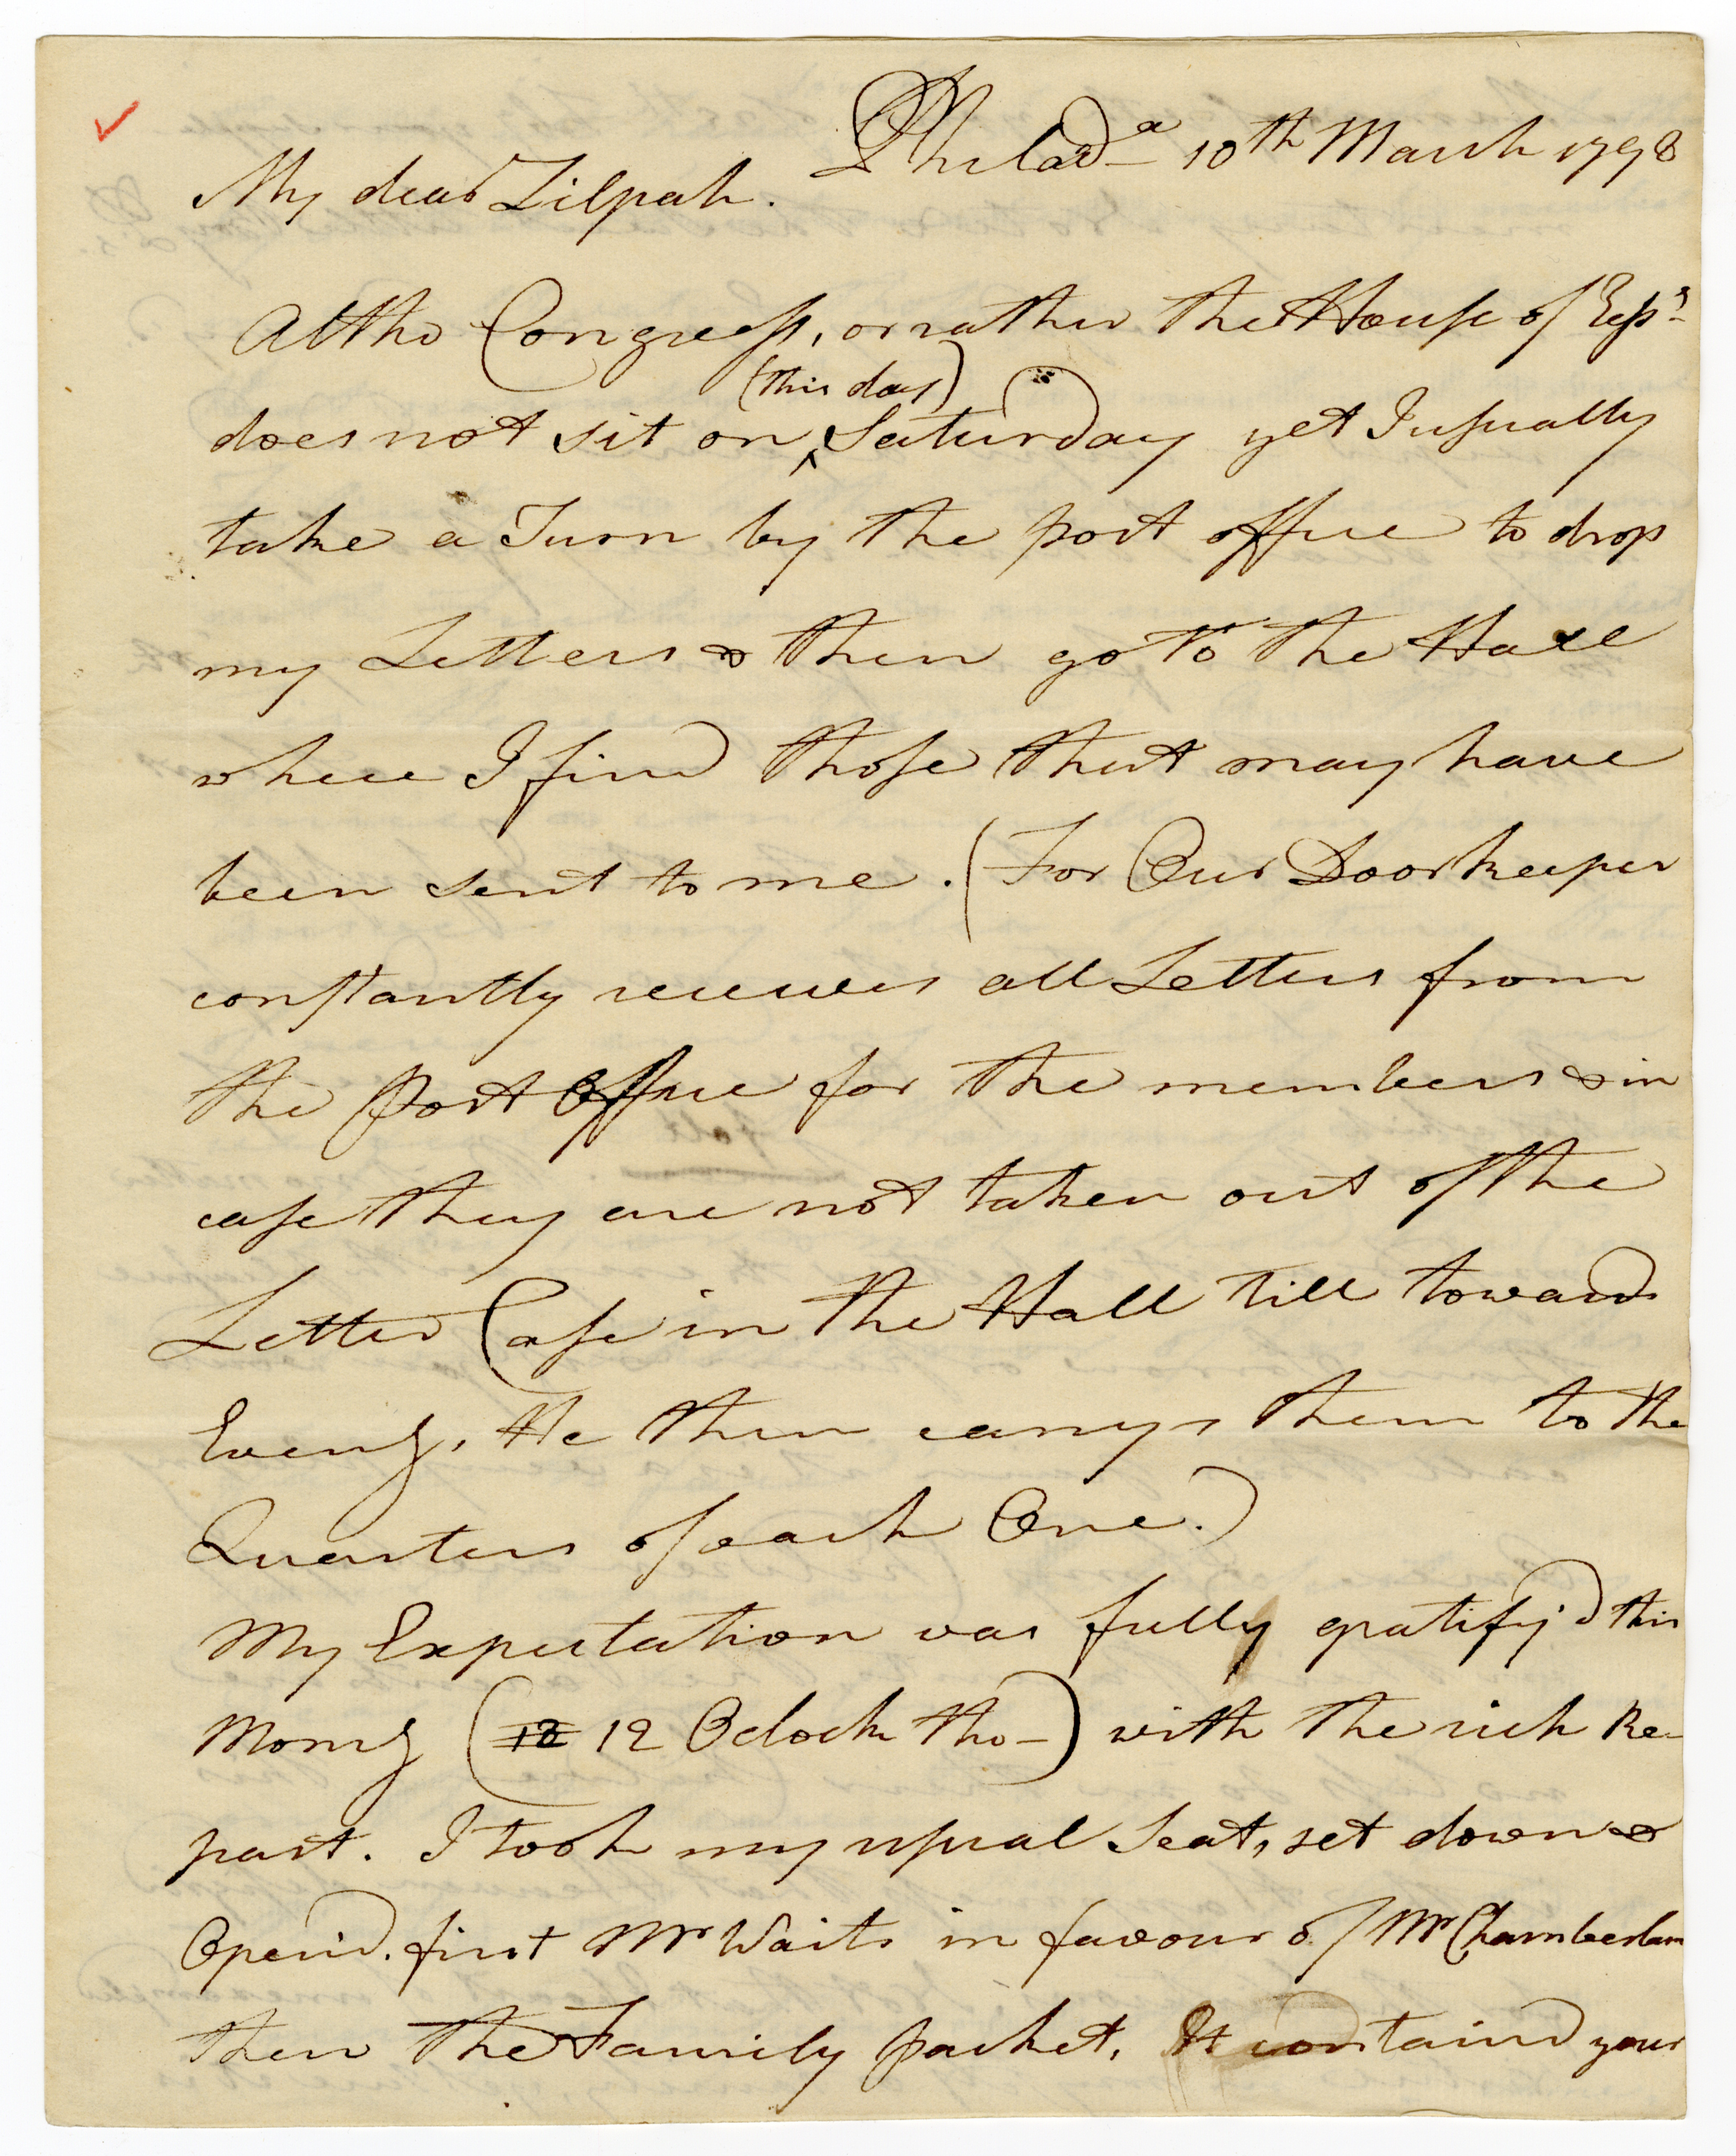 Philad^a 10th March 1798
My dear Zilpah.
Altho Congress, or rather the House of Reps
(this day)
does not sit on ^ Saturday yet I usually
take a Turn by the post office to drop
my Letters & then go to the Hall
where I find those that may have
been sent to me. (For Our Doorkeeper
constantly receives all Letters from
the Post Office for the members & in
case they are not taken out of the
Letter Case in the Hall till towards
Eveng, He then carrys them to the
Quarters of each One.)
My Expectation was fully gratify'd this
Morng (12 12 Oclock tho-) with the rich Re-
past. I took my usual Seat, set down &
Open'd. first Mr Waits in favour of Mr Chamberlain
then the Family packet. It contain'd your